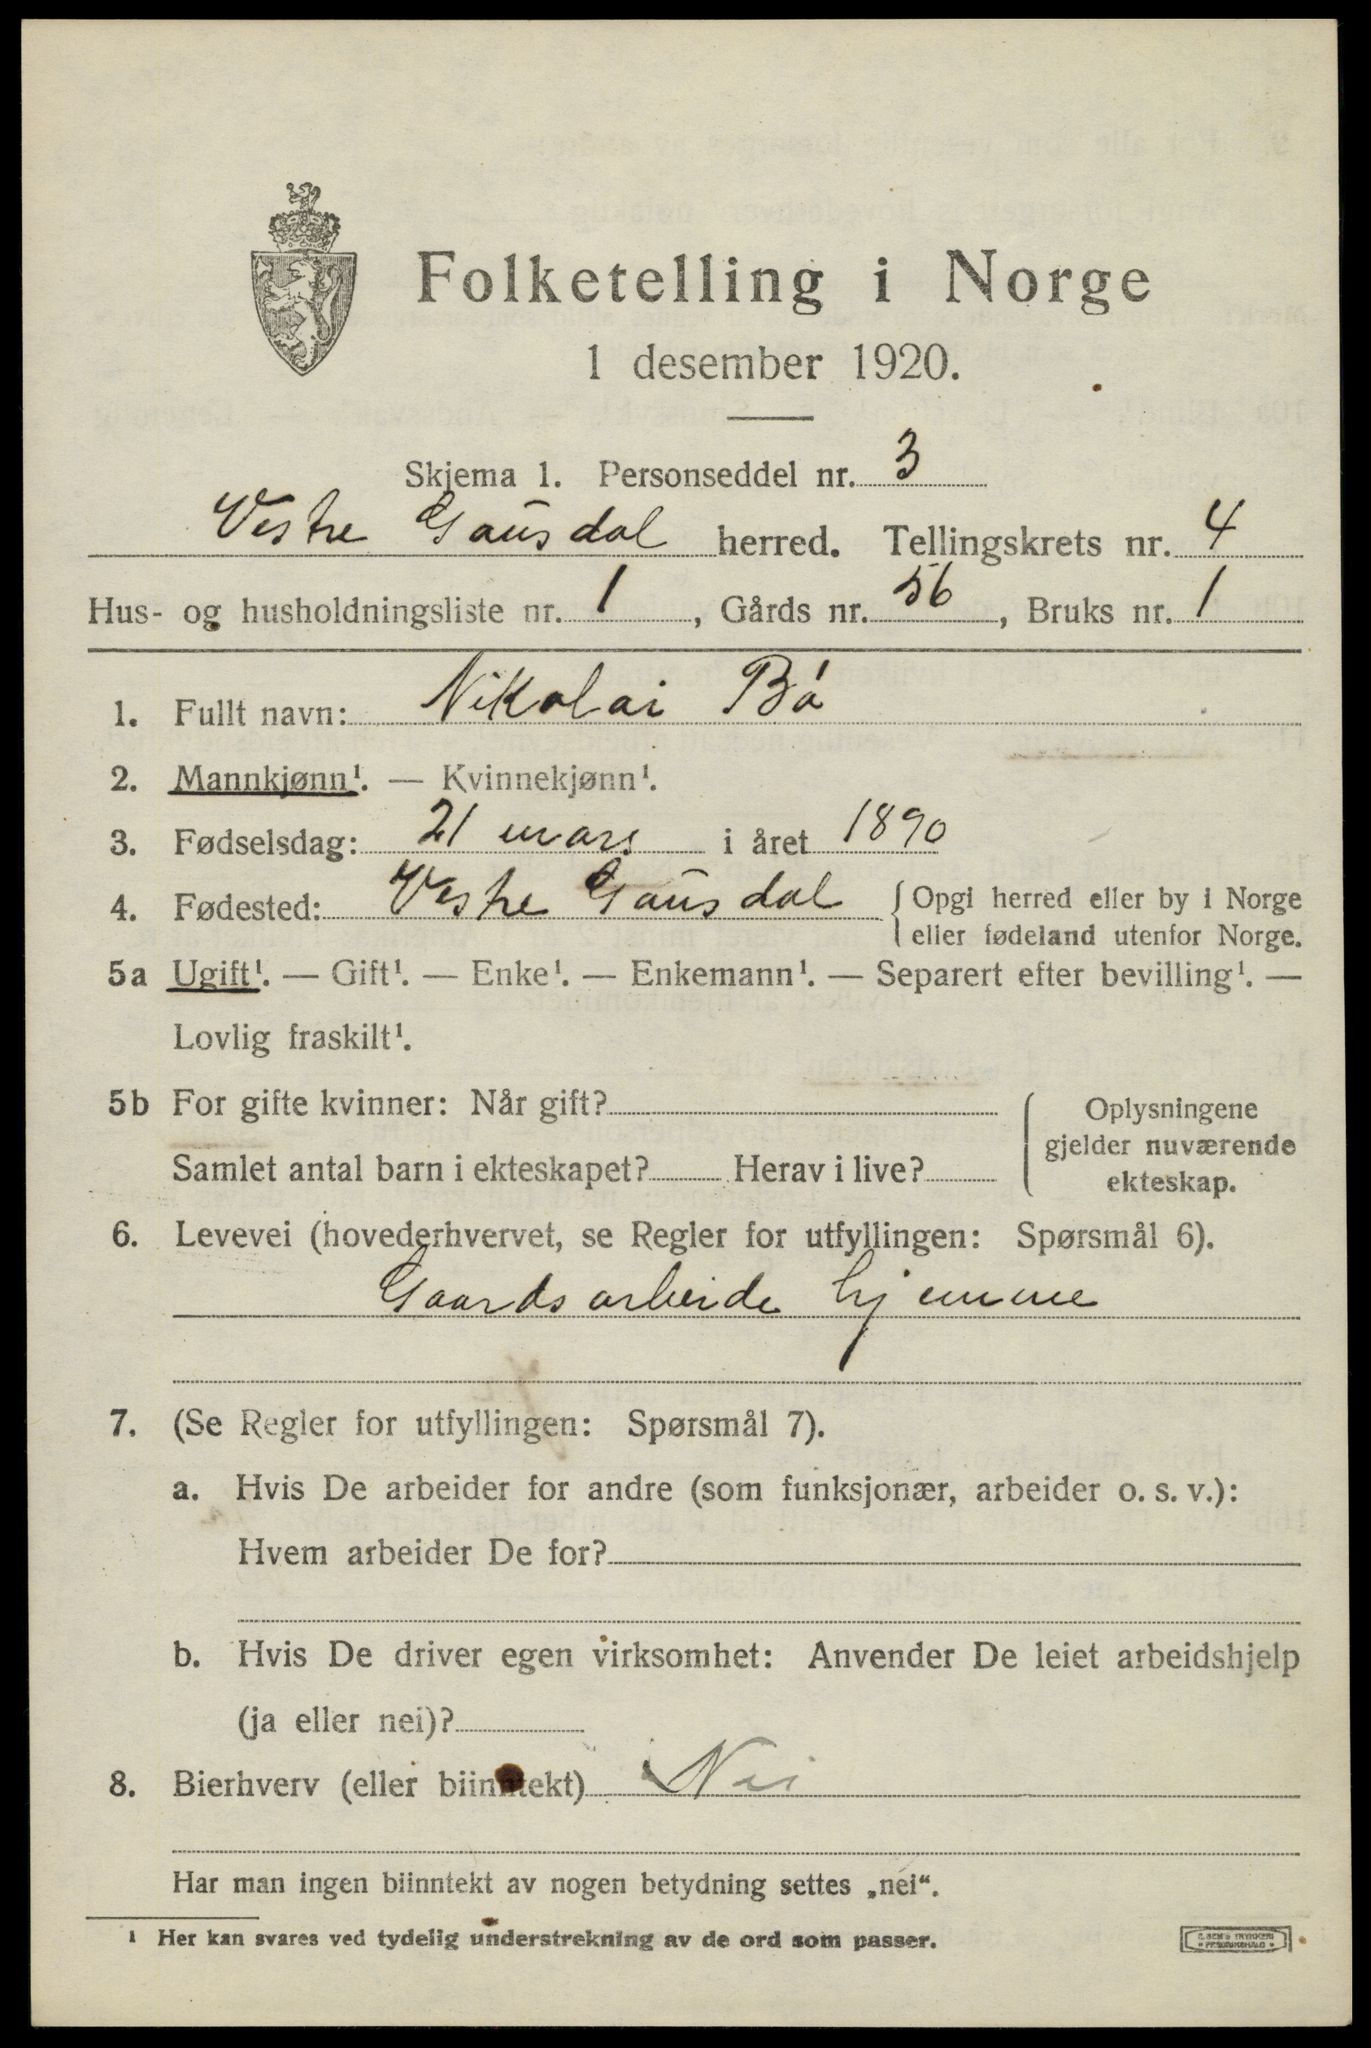 Folketelling i Norge
1 desember 1920.
Skjema 1. Personseddel nr. 3
Vestre Gausdal herred. Tellingskrets nr. 4
Hus- og husholdningsliste nr. 1, Gårds nr. 56, Bruks nr. 1
1. Fullt navn: Nikolai Bø
2. Mannkjønn¹. — Kvinnekjønn¹.
3. Fødselsdag: 21 mars i året 1890
4. Fødested: Vestre Gausdal { Opgi herred eller by i Norge
eller fødeland utenfor Norge.
5a Ugift¹. — Gift¹. — Enke¹. — Enkemann¹. — Separert efter bevilling¹. —
Lovlig fraskilt¹.
5b For gifte kvinner: Når gift?
Samlet antal barn i ekteskapet? Herav i live?
Oplysningene
gjelder nuværende
ekteskap.
6. Levevei (hovederhvervet, se Regler for utfyllingen: Spørsmål 6).
Gaardsarbeide hjemme
7. (Se Regler for utfyllingen: Spørsmål 7).
a. Hvis De arbeider for andre (som funksjonær, arbeider o. s. v.):
Hvem arbeider De for?
b. Hvis De driver egen virksomhet: Anvender De leiet arbeidshjelp
(ja eller nei)?
8. Bierhverv (eller biinntekt) Nei
Har man ingen biinntekt av nogen betydning settes „nei“.
¹ Her kan svares ved tydelig understrekning av de ord som passer.